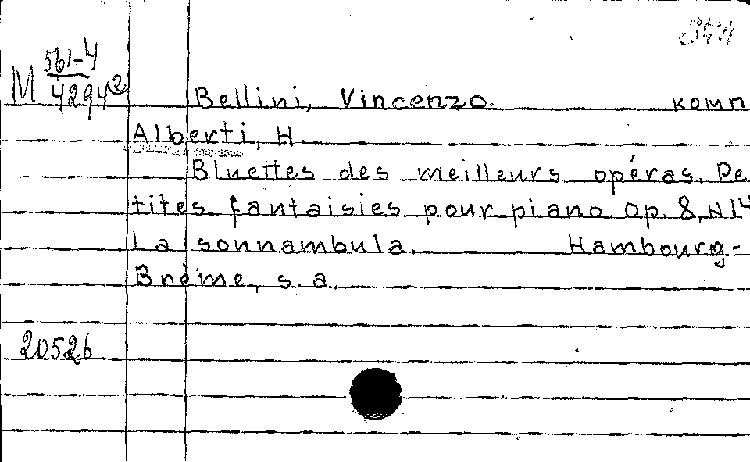 М 561-4
4294²
Bellini, Vincenzo. комп
Alberti, H
Bluettes des meilleurs opéras. Pe
tites fantaisies pour piano Op. 8, N14
La sonnambula. Hambourg-
Brême, s. a.
20526